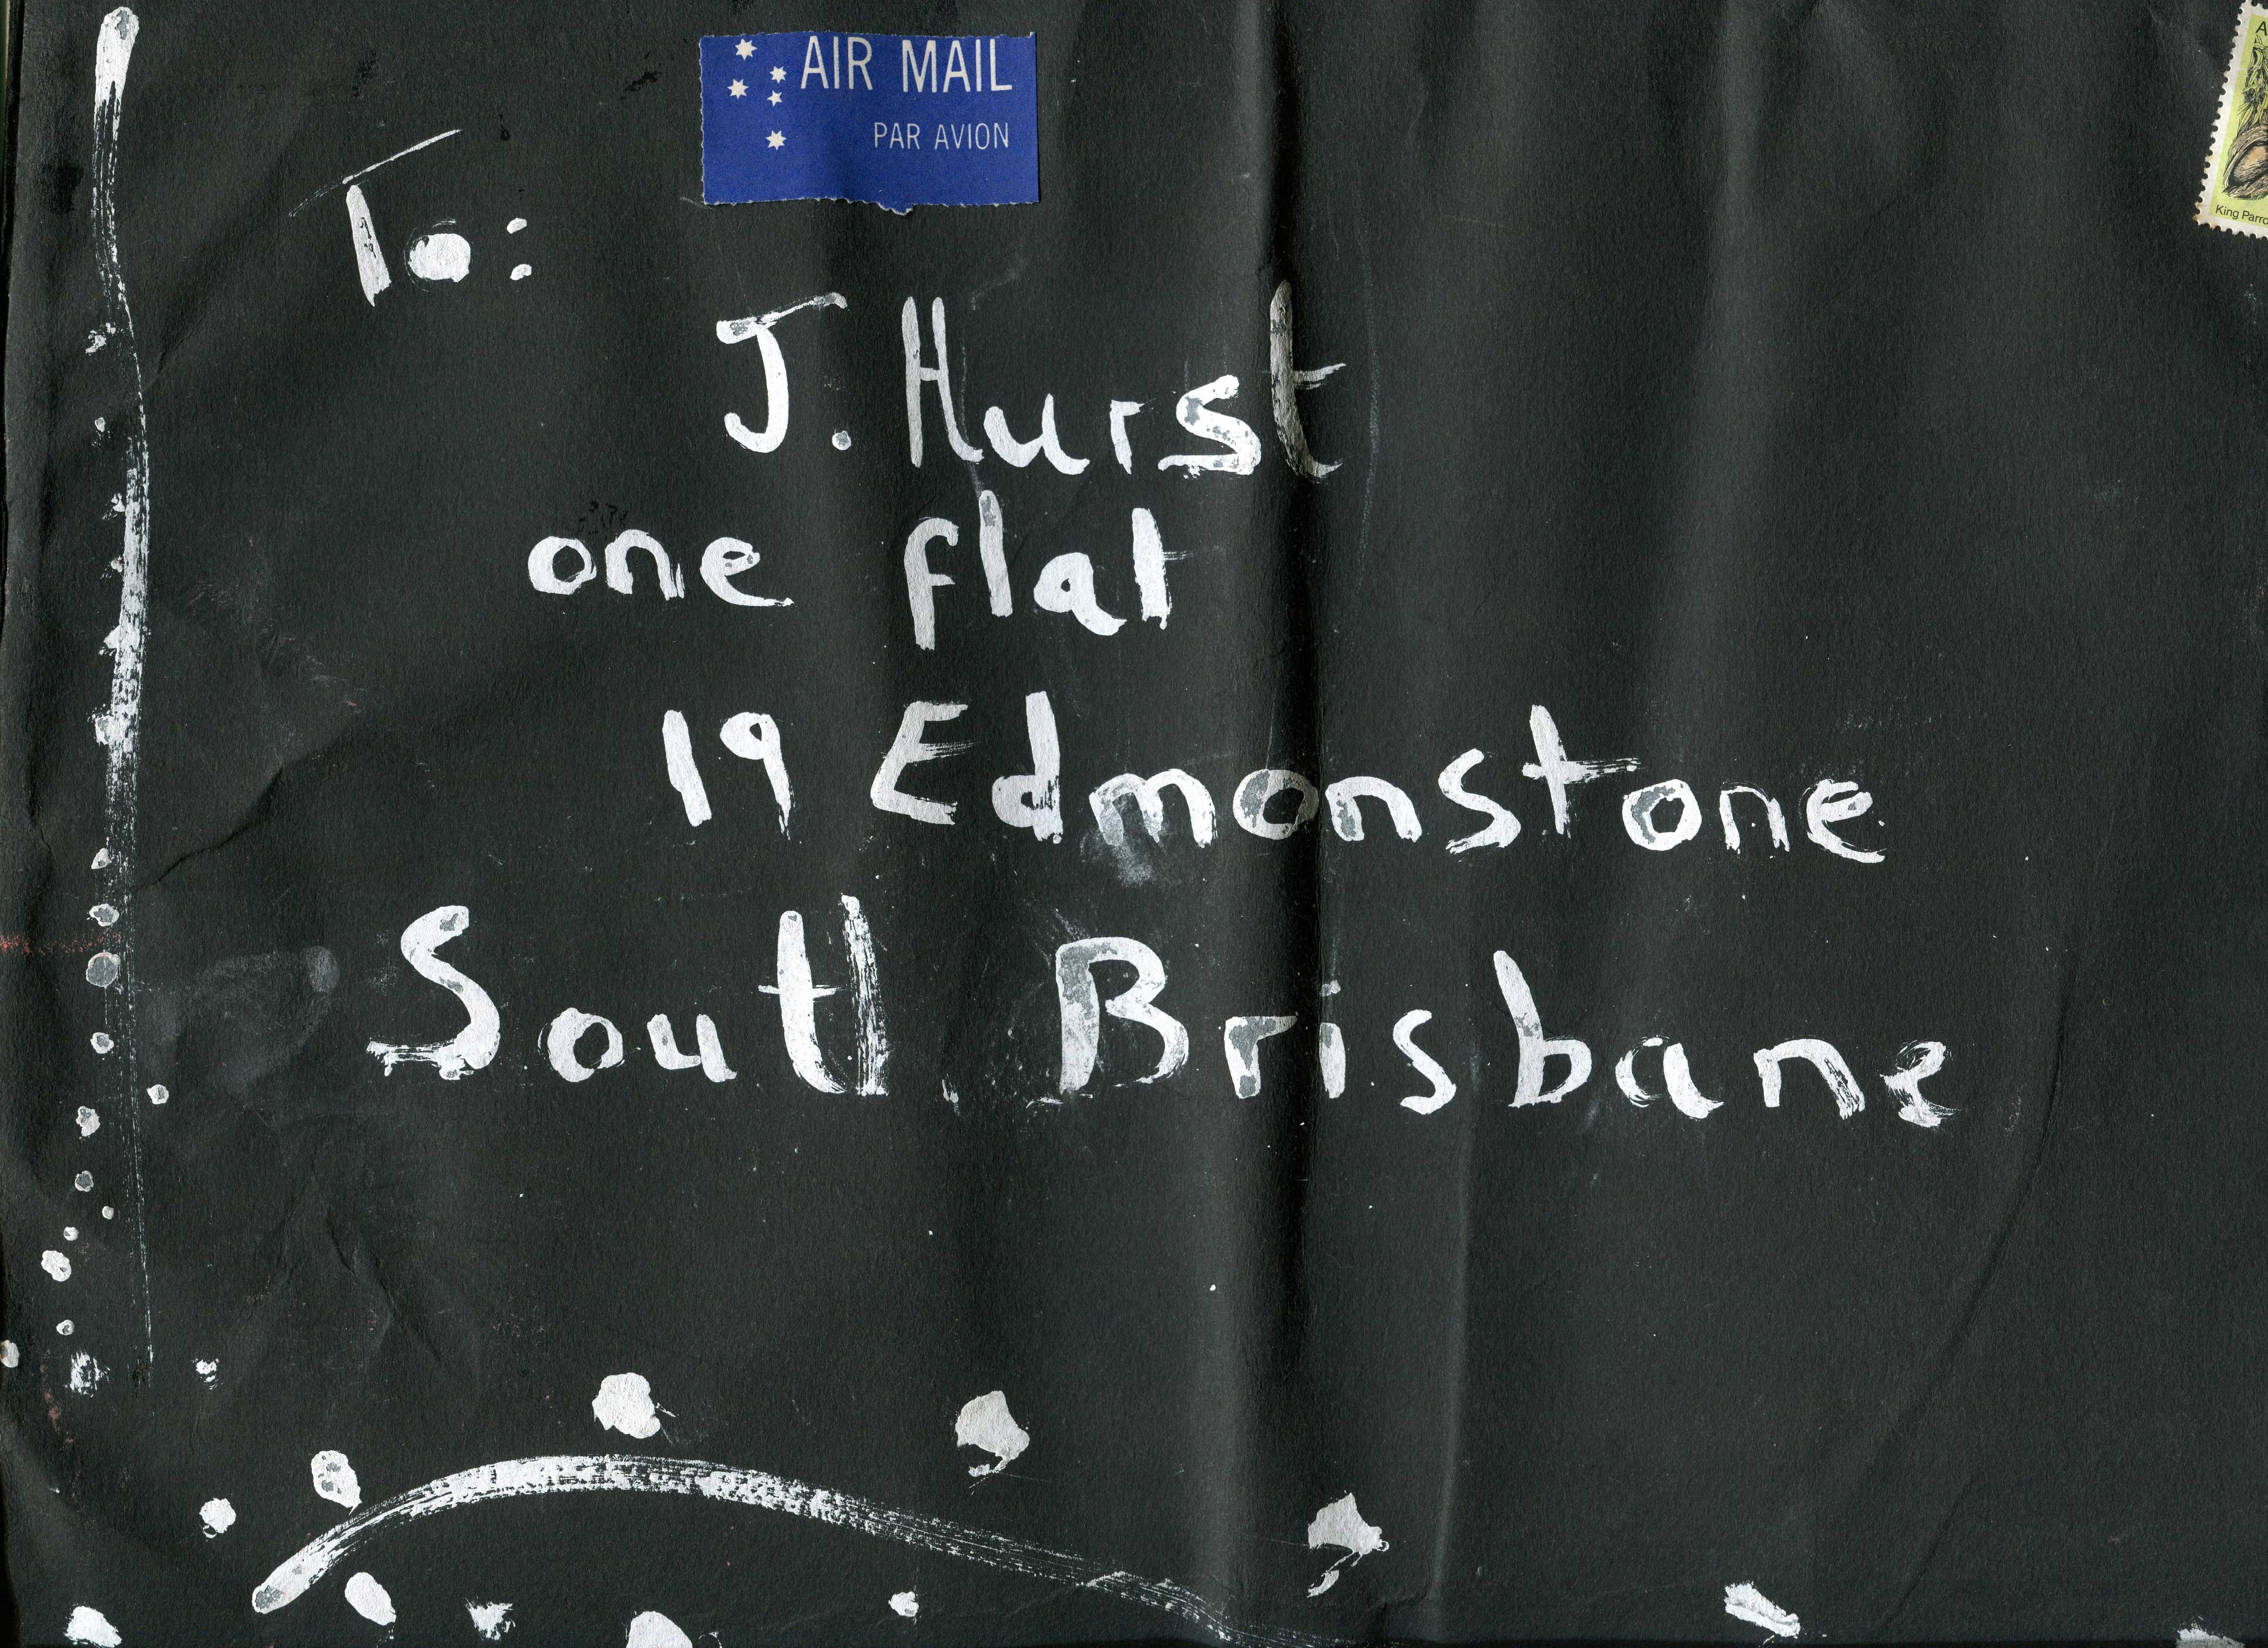 AIR MAIL
PAR AVION
King Parro
To:
J. Hurst
one flat
19 Edmonstone
South Brisbane